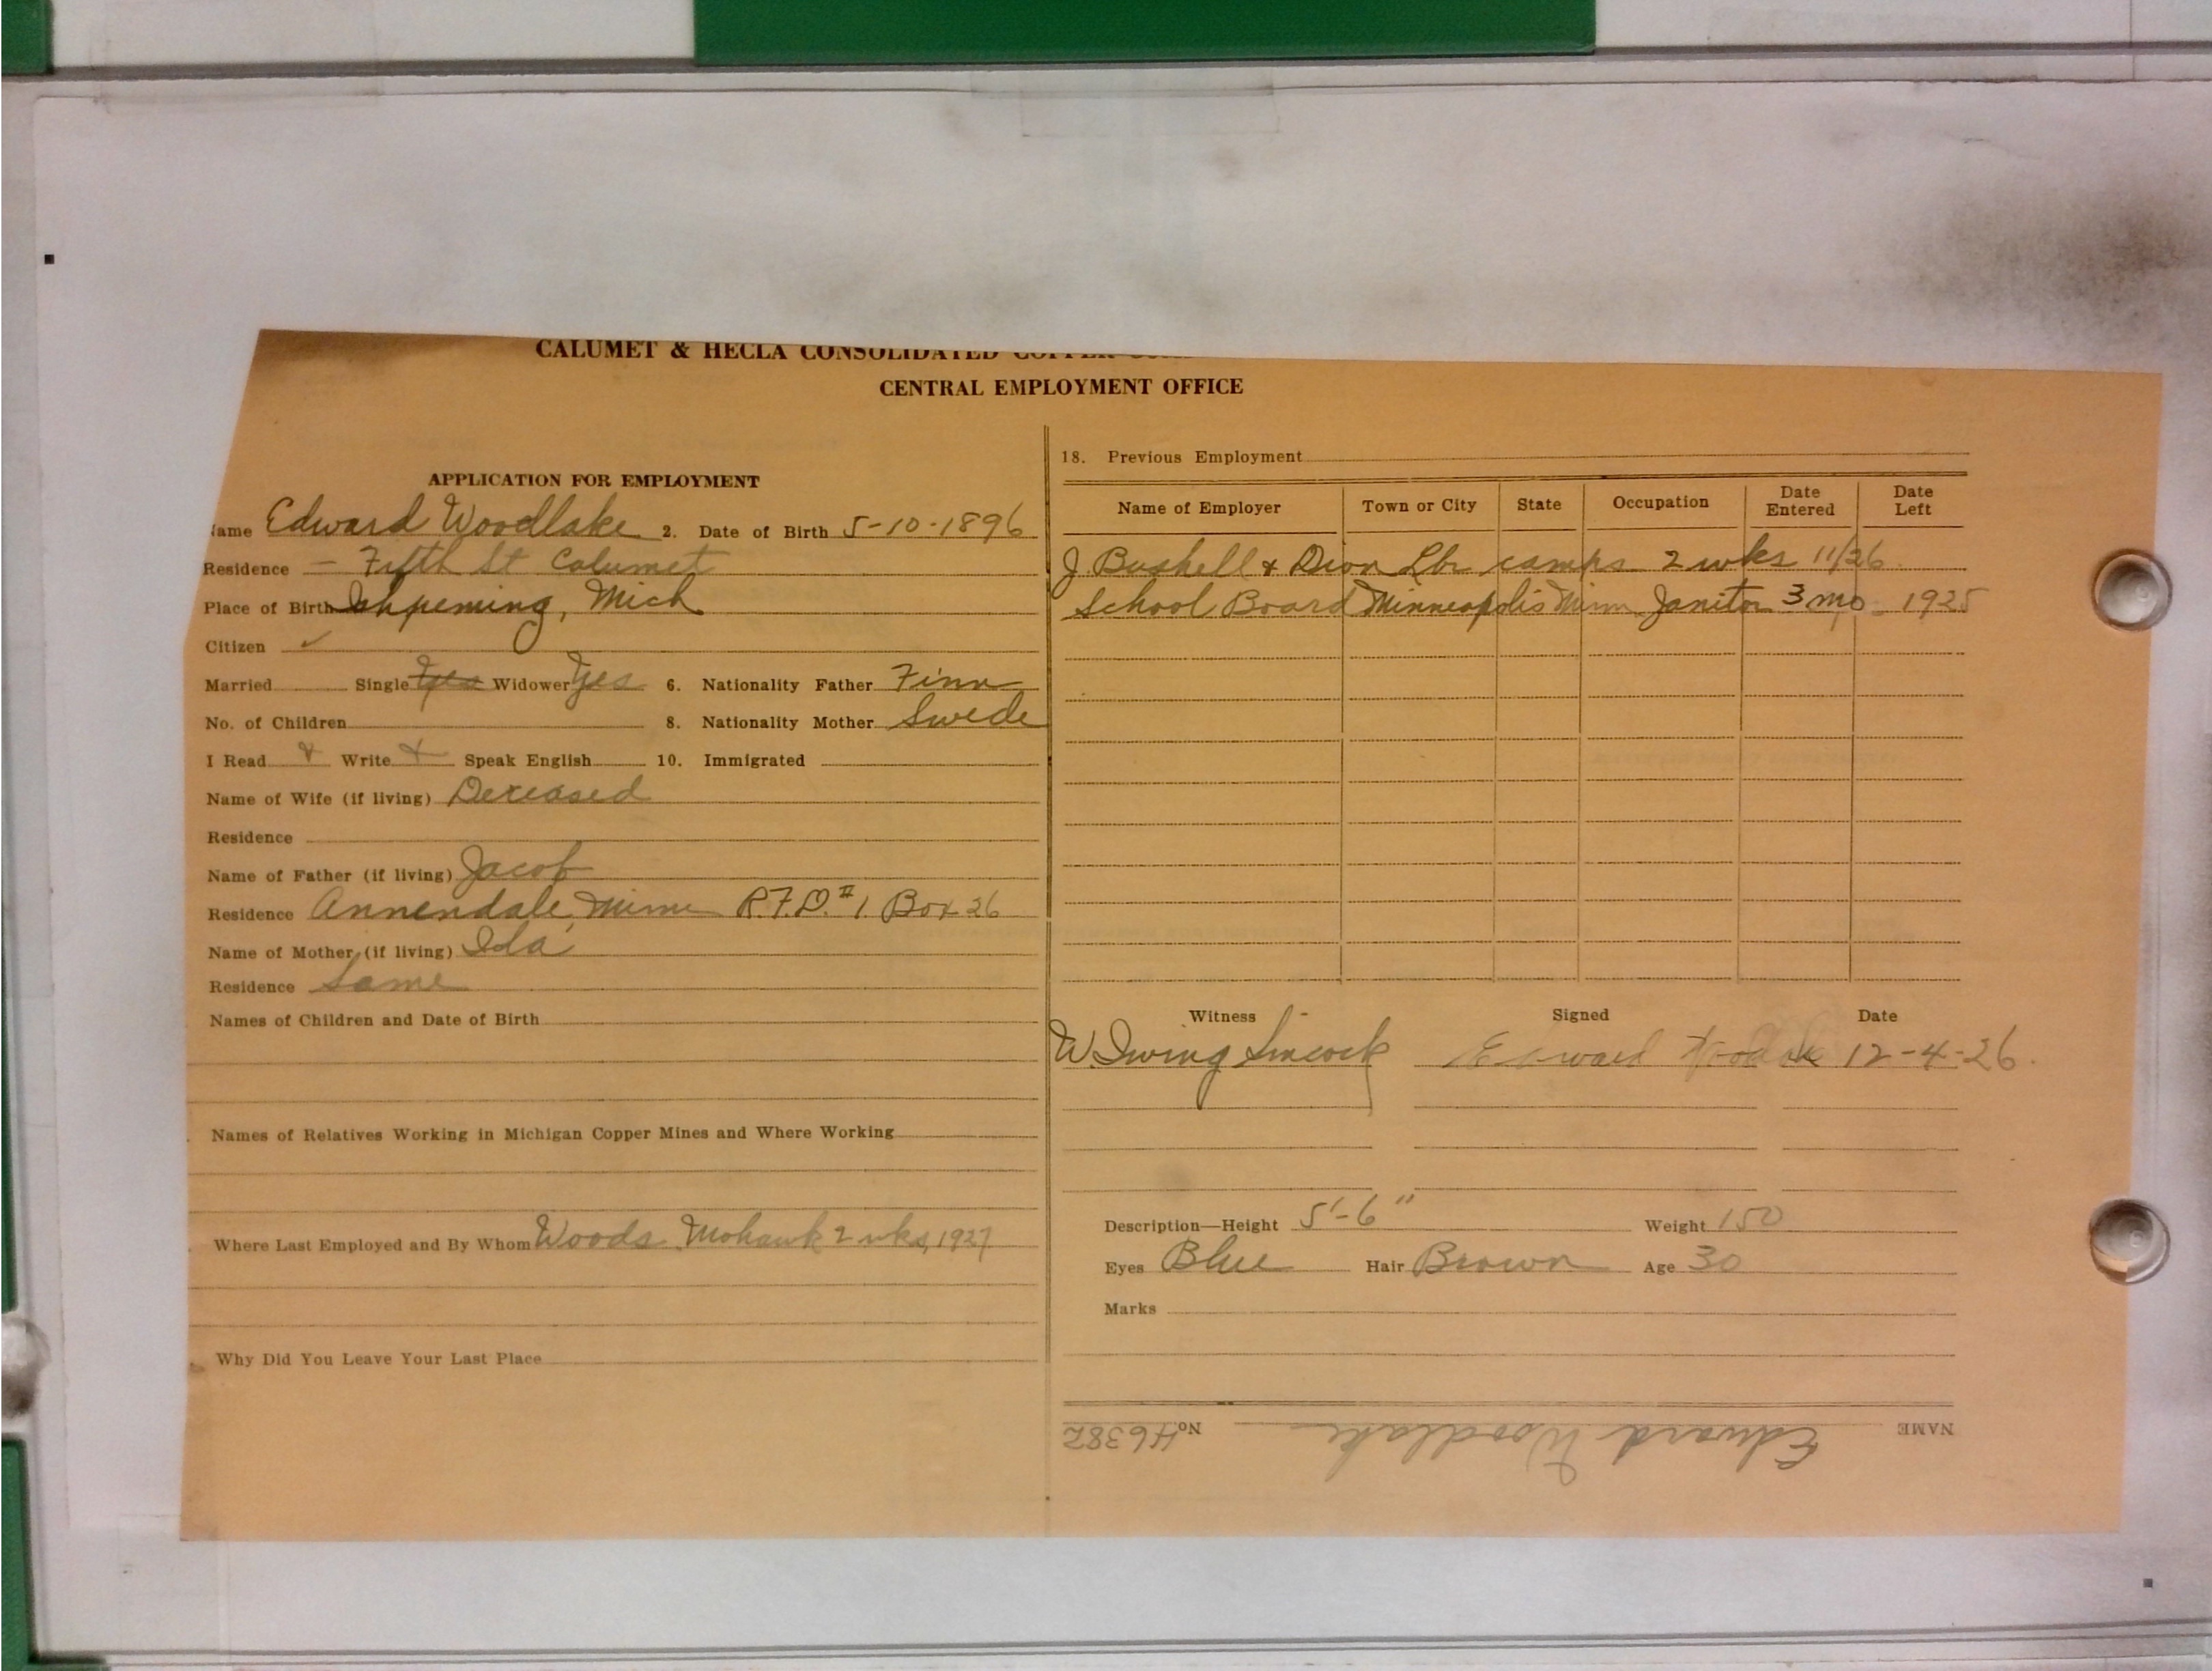 CALUMET & HECLA CONSOLIDATED COPPER
CENTRAL EMPLOYMENT OFFICE
APPLICATION FOR EMPLOYMENT
ame Edward Woodlake 2. Date of Birth 5-10-1896
Residence - Fifth St Calumet
Place of Birth Ishpeming, Mich
Citizen ✓
Married Single Yes Widower Yes 6. Nationality Father Finn
No. of Children 8. Nationality Mother Swede
I Read Write Speak English 10. Immigrated
Name of Wife (if living) Deceased
Residence
Name of Father (if living) Jacob
Residence Annendale, Minn R.F.D. #1. Box 26
Name of Mother (if living) Ida
Residence Same
Names of Children and Date of Birth
Names of Relatives Working in Michigan Copper Mines and Where Working
Where Last Employed and By Whom Woods Mohawk 2 wks, 1927
Why Did You Leave Your Last Place
18. Previous Employment
Name of Employer Town or City State Occupation Date Entered Date Left
J. Bushell & Dion Lbr camps 2 wks 11/26
School Board Minneapolis Minn Janitor 3 mo 1925
Witness Signed Date
W. Irving Edward 12-4-26
Description—Height 5'-6" Weight 150
Eyes Blue Hair Brown Age 30
Marks
NAME Edward Woodlake No. H6382